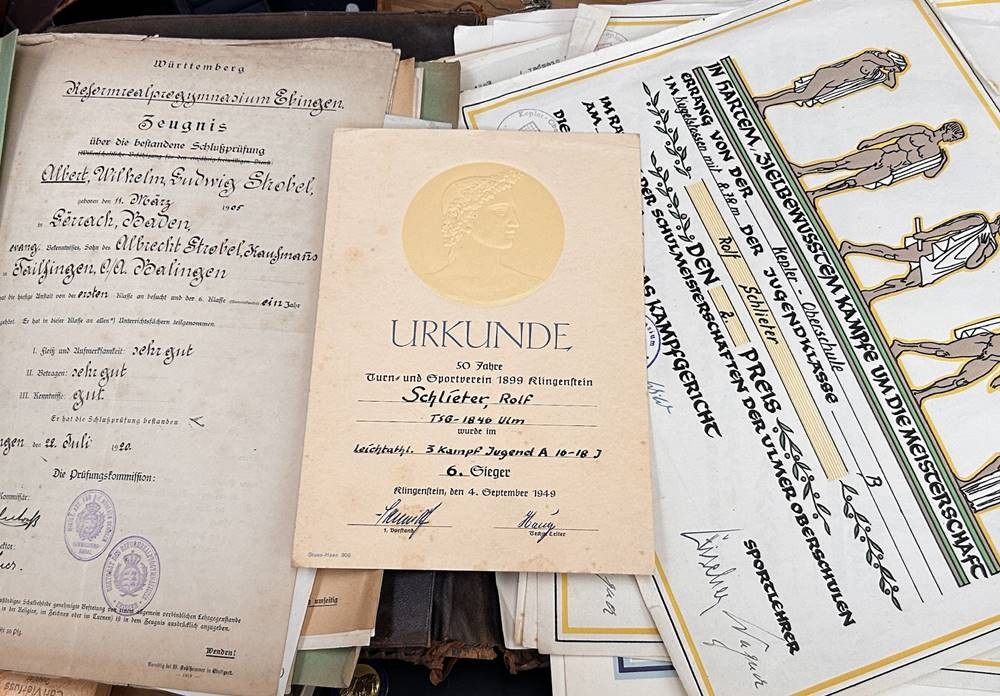 Württemberg
Reformrealprogymnasium Ebingen.
Zeugnis
über die bestandene Schlußprüfung
Albert, Wilhelm, Ludwig Strobel,
geboren den 11. März 1905
in Lörrach, Baden,
evang. Bekenntnisses, Sohn des Albrecht Strobel, Kaufmanns
in Tailfingen, O/A. Balingen
hat die hiesige Anstalt von der ersten Klasse an besucht und der 6. Klasse ein Jahr
angehört. Er hat in dieser Klasse an allen*) Unterrichtsfächern teilgenommen.
I. Fleiß und Aufmerksamkeit: sehr gut
II. Betragen: sehr gut
III. Kenntnisse: gut.
Er hat die Schlußprüfung bestanden
ngen den 22. Juli 1920.
Die Prüfungskommission:
Wenden!
URKUNDE
50 Jahre
Turn- und Sportverein 1899 Klingenstein
Schlieter, Rolf
TSG-1846 Ulm
wurde im
Leichtathl. 3 Kampf Jugend A 16-18 J
6. Sieger
Klingenstein, den 4. September 1949
1. Vorstand
Techn. Leiter
IN HARTEM, ZIELBEWUSSTEM KAMPFE UM DIE MEISTERSCHAFT
ERRANG VON DER Kepler-Oberschule
IM Kugelstossen mit 8.78 m DER JUGENDKLASSE B
Rolf Schlieter
DEN 2. PREIS
DER SCHULMEISTERSCHAFTEN DER ULMER OBERSCHULEN
DAS KAMPFGERICHT
SPORTLEHRER